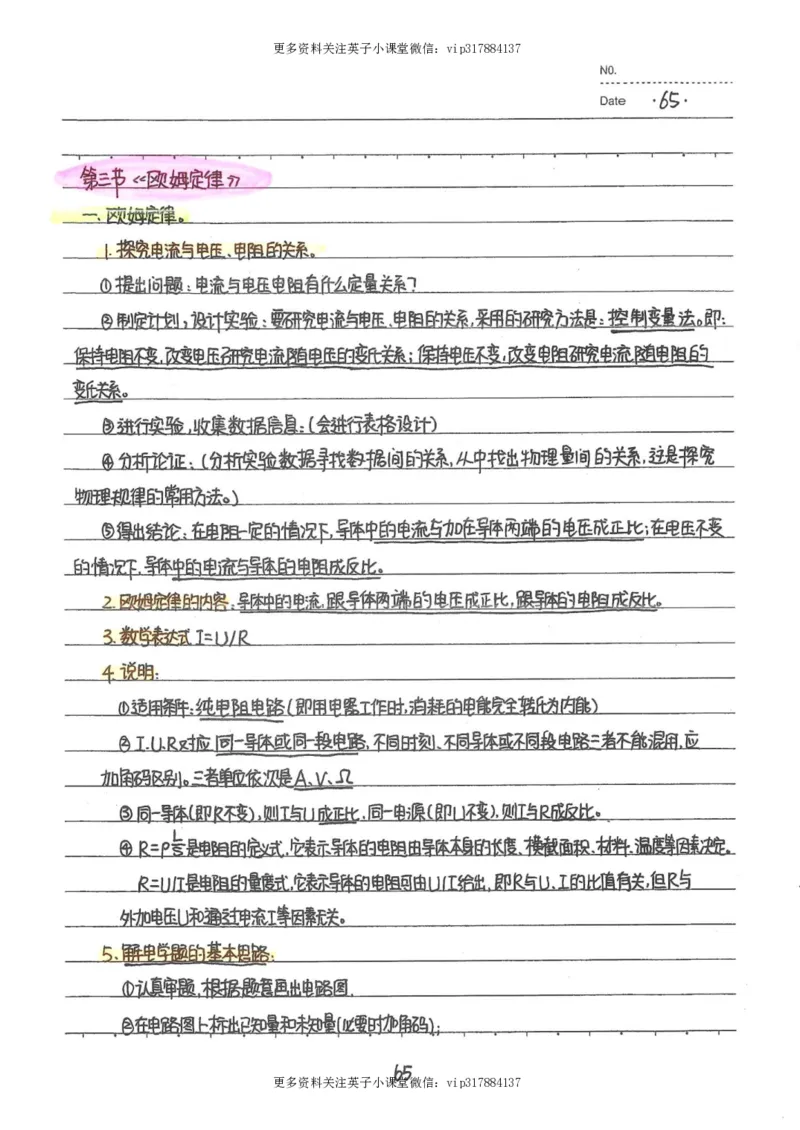 更多资料关注英子小课堂微信：vip317884137
N0.
Date ·65·
第三节《欧姆定律》
一、欧姆定律。
1.探究电流与电压、电阻的关系。
①提出问题：电流与电压电阻有什么定量关系？
②制定计划，设计实验：要研究电流与电压、电阻的关系,采用的研究方法是：控制变量法。即：
保持电阻不变,改变电压研究电流随电压的变化关系；保持电压不变,改变电阻研究电流随电阻的
变化关系。
③进行实验,收集数据信息：(会进行表格设计)
④分析论证：(分析实验数据寻找数据间的关系,从中找出物理量间的关系,这是探究
物理规律的常用方法。)
⑤得出结论：在电阻一定的情况下,导体中的电流与加在导体两端的电压成正比；在电压不变
的情况下,导体中的电流与导体的电阻成反比。
2.欧姆定律的内容：导体中的电流,跟导体两端的电压成正比,跟导体的电阻成反比。
3.数学表达式 I=U/R
4.说明：
①适用条件：纯电阻电路(即用电器工作时,消耗的电能完全转化为内能)
②I.U.R对应同一导体或同一段电路,不同时刻、不同导体或不同段电路三者不能混用,应
加角码区别。三者单位依次是A、V、Ω
③同一导体(即R不变),则I与U成正比,同一电源(即U不变),则I与R成反比。
④R=ρL/S是电阻的定义式,它表示导体的电阻由导体本身的长度、横截面积、材料、温度等因素决定。
R=U/I是电阻的量度式,它表示导体的电阻可由U/I给出,即R与U、I的比值有关,但R与
外加电压U和通过电流I等因素无关。
5、解电学题的基本思路：
①认真审题,根据题意画出电路图.
②在电路图上标出已知量和未知量(必要时加角码)；
65
更多资料关注英子小课堂微信：vip317884137